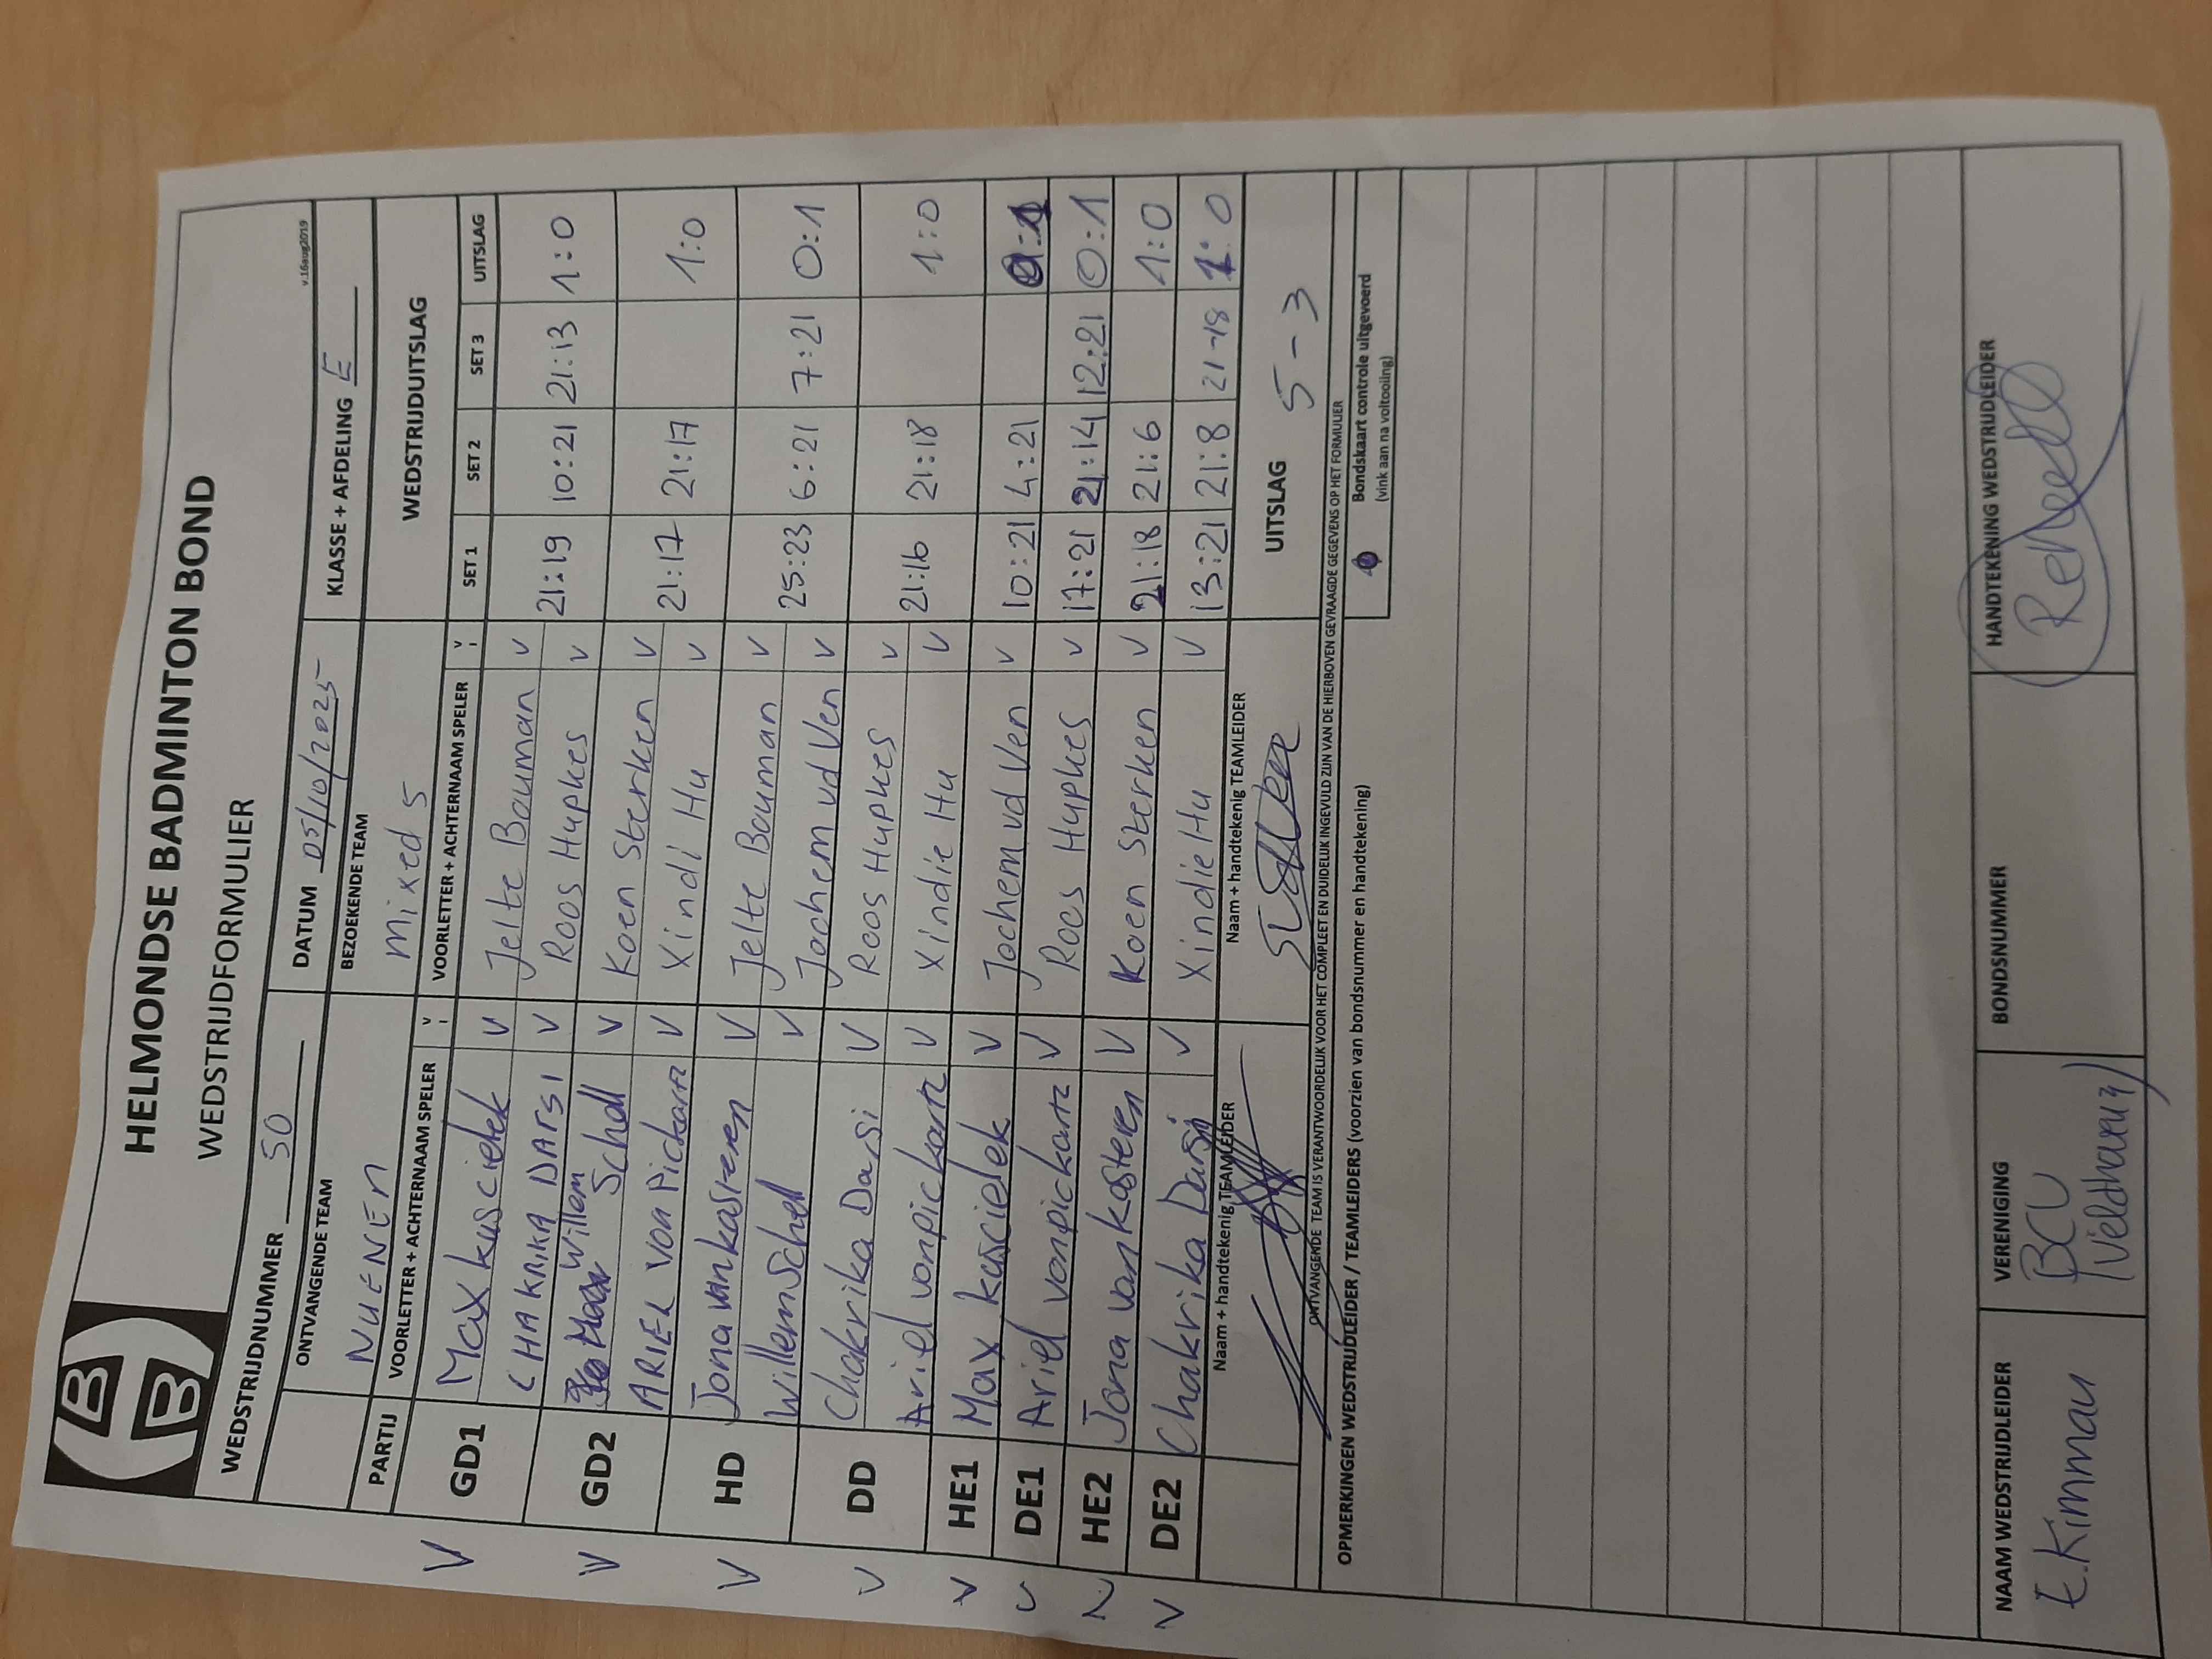 HELMONDSE BADMINTON BOND
WEDSTRIJDFORMULIER
v.16aug2019
WEDSTRIJDNUMMER 50 DATUM 05/10/2025 KLASSE + AFDELING E
ONTVANGENDE TEAM BEZOEKENDE TEAM
NUENEN Mixed 5 WEDSTRIJDUITSLAG
PARTIJ VOORLETTER + ACHTERNAAM SPELER V VOORLETTER + ACHTERNAAM SPELER V SET 1 SET 2 SET 3 UITSLAG
GD1 Max kuscielek V Jelte Bouman V
CHAKRIKA DARSI V Roos Hupkes V 21:19 10:21 21:13 1:0
GD2 Willem Schell V Koen Sterken V
ARIEL von Pickartz V Xindi Hu V 21:17 21:17 1:0
HD Jona van kasteren V Jelte Bouman V
Willem Schell V Jochem vd Ven V 25:23 6:21 7:21 0:1
DD Chakrika Darsi V Roos Hupkes V
Ariel vonpickartz V Xindie Hu V 21:16 21:18 1:0
HE1 Max kuscielek V Jochem vd Ven V 10:21 4:21 0:1
DE1 Ariel vonpickartz V Roos Hupkes V 17:21 21:14 12:21 0:1
HE2 Jona van kasteren V Koen Sterken V 21:18 21:6 1:0
DE2 Chakrika Darsi V Xindie Hu V 13:21 21:8 21-18 1:0
Naam + handtekenig TEAMLEIDER Naam + handtekenig TEAMLEIDER UITSLAG 5-3
ONTVANGENDE TEAM IS VERANTWOORDELIJK VOOR HET COMPLEET EN DUIDELIJK INGEVULD ZIJN VAN DE HIERBOVEN GEVRAAGDE GEGEVENS OP HET FORMULIER
OPMERKINGEN WEDSTRIJDLEIDER / TEAMLEIDERS (voorzien van bondsnummer en handtekening)
Bondskaart controle uitgevoerd
(vink aan na voltooiing)
NAAM WEDSTRIJDLEIDER VERENIGING BONDSNUMMER HANDTEKENING WEDSTRIJDLEIDER
E. Kimman BCV
(Veldhoven)